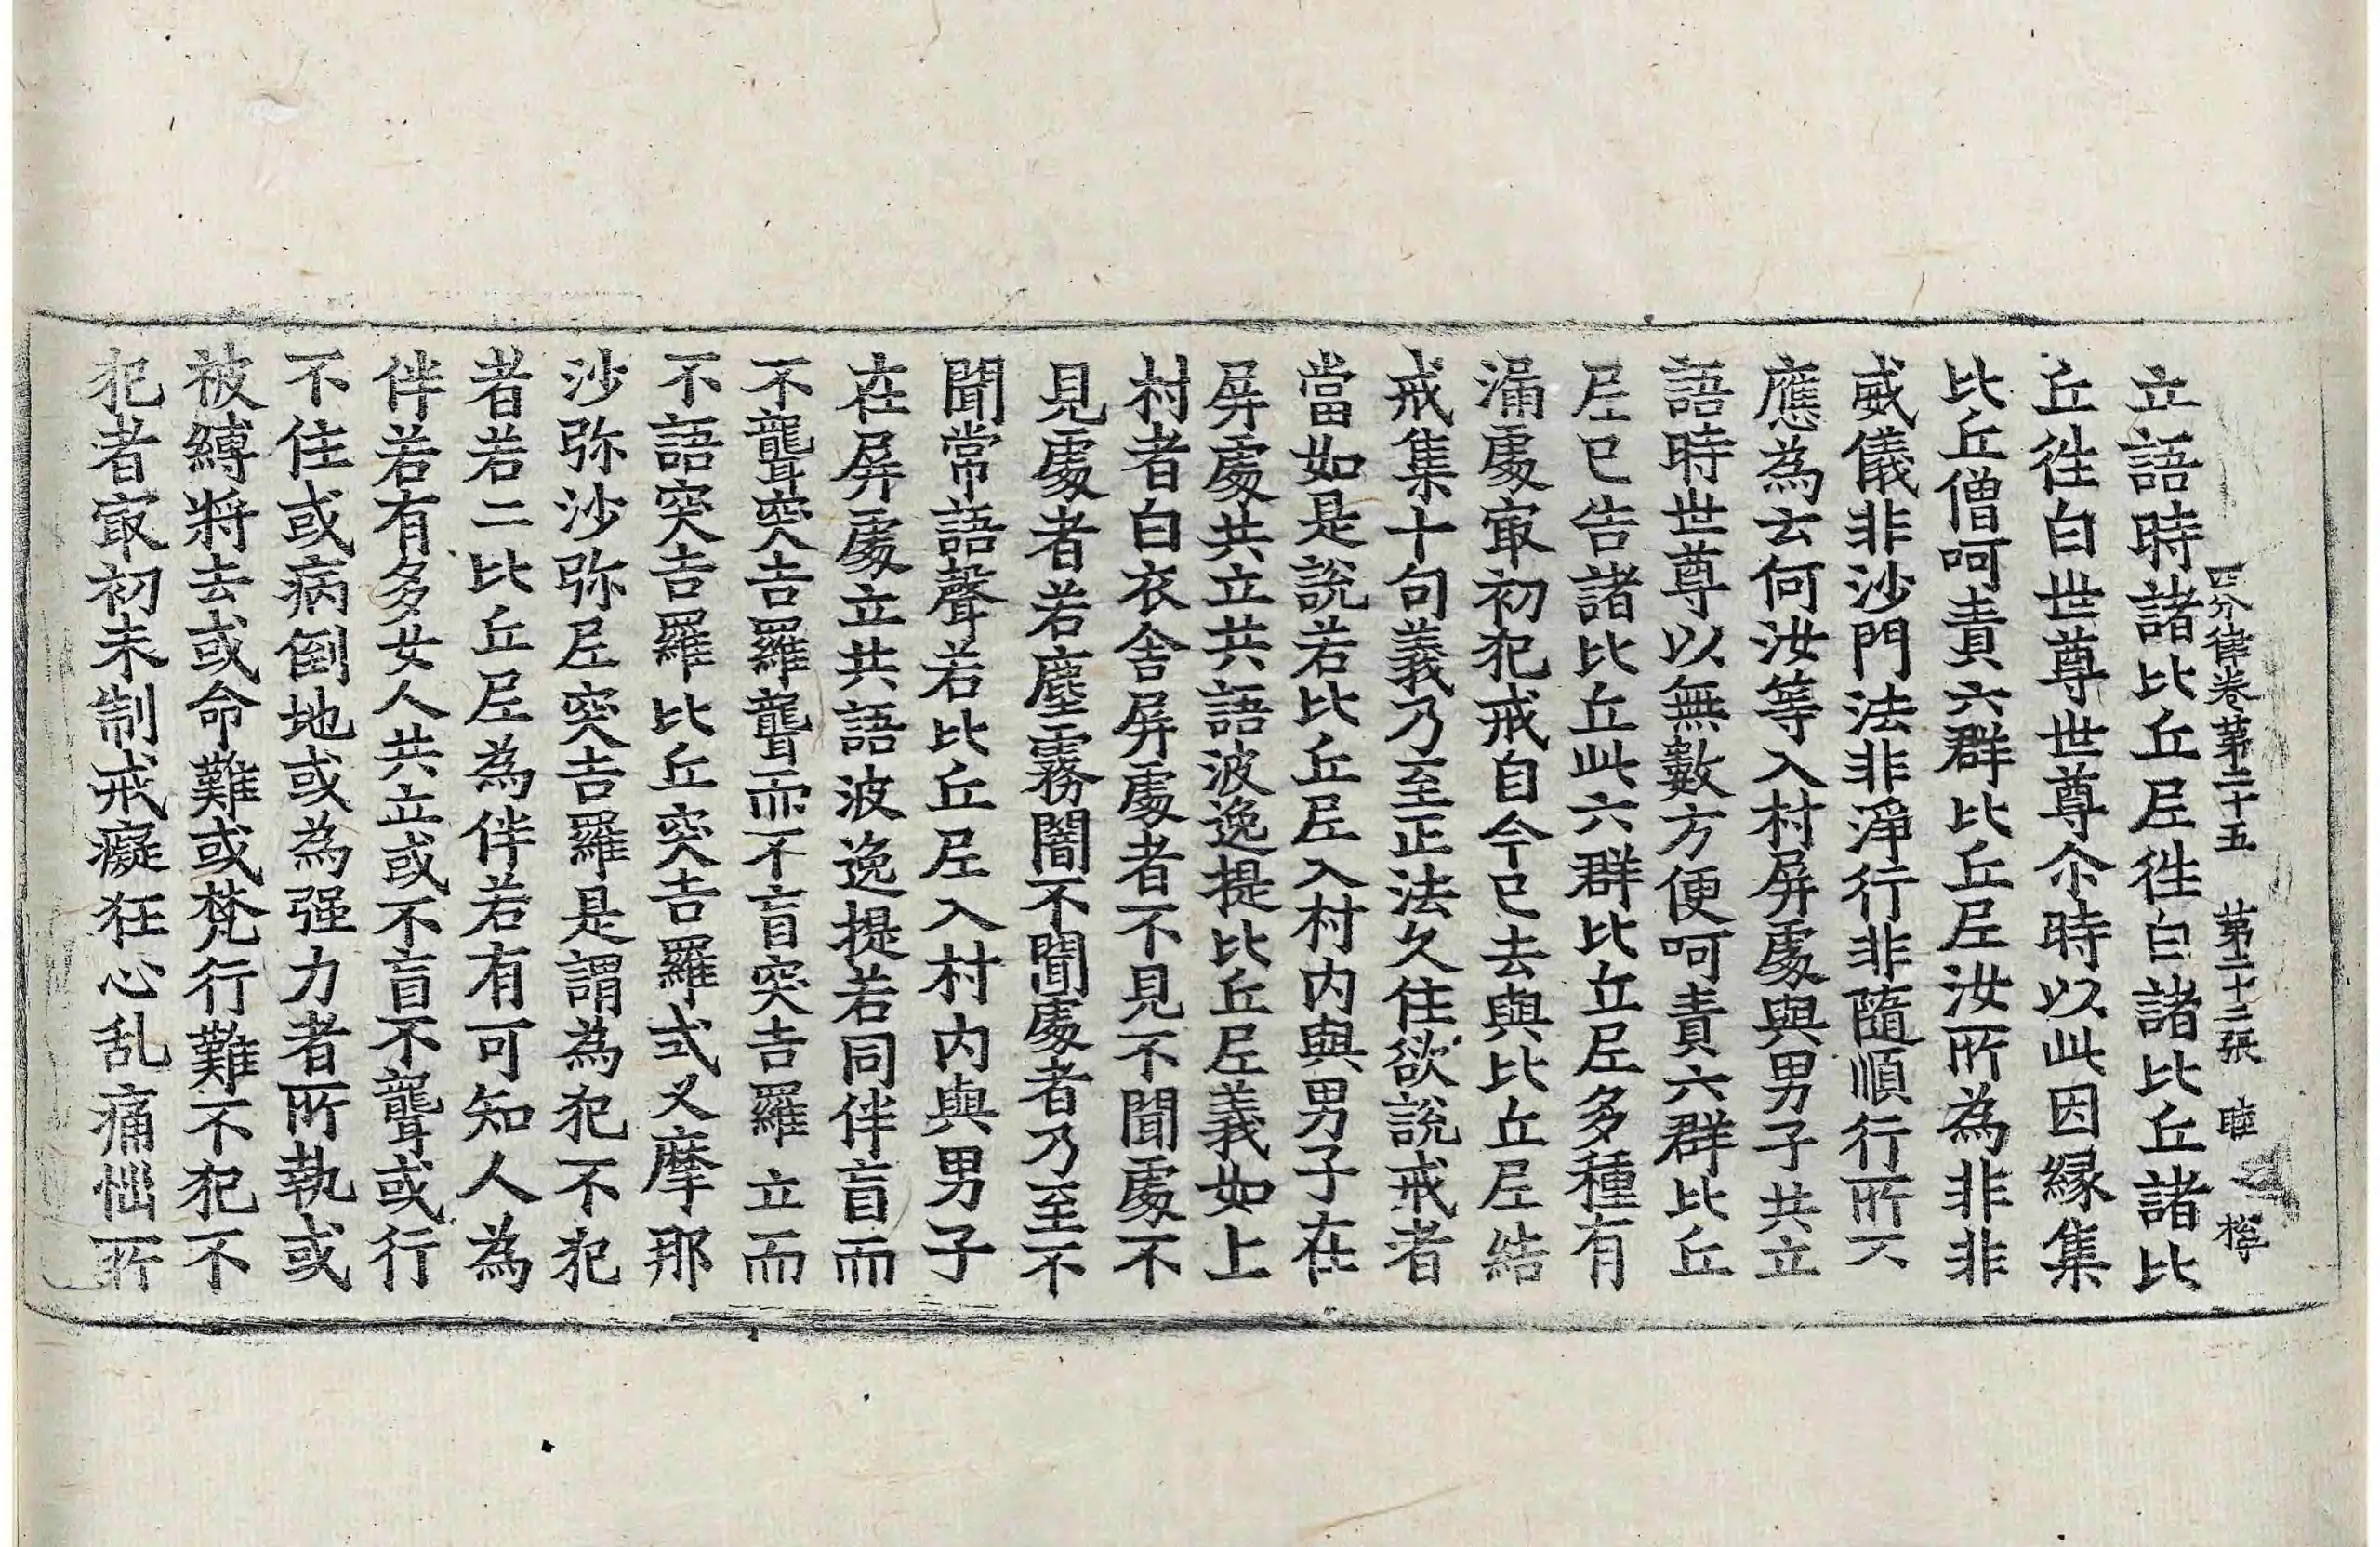 四分律卷第二十五 第二十三張 睡
立語時諸比丘尼徃白諸比丘諸比
丘徃白世尊世尊尒時以此因縁集
比丘僧呵責六群比丘尼汝所為非非
威儀非沙門法非淨行非隨順行所不
應為云何汝等入村屏處與男子共立
語時世尊以無數方便呵責六群比丘
尼已告諸比丘此六群比丘尼多種有
漏處冣初犯戒自今已去與比丘尼結
戒集十句義乃至正法久住欲說戒者
當如是說若比丘尼入村内與男子在
屏處共立共語波逸提比丘尼義如上
村者白衣舎屏處者不見不聞處不
見處者若塵霧闇不聞處者乃至不
聞常語聲若比丘尼入村内與男子
在屏處立共語波逸提若同伴盲而
不聾突吉羅聾而不盲突吉羅立而
不語突吉羅比丘突吉羅式叉摩那
沙弥沙弥尼突吉羅是謂為犯不犯
者若二比丘尼為伴若有可知人為
伴若有多女人共立或不盲不聾或行
不住或病倒地或為强力者所執或
被縛將去或命難或梵行難不犯不
犯者冣初未制戒癡狂心乱痛惱所